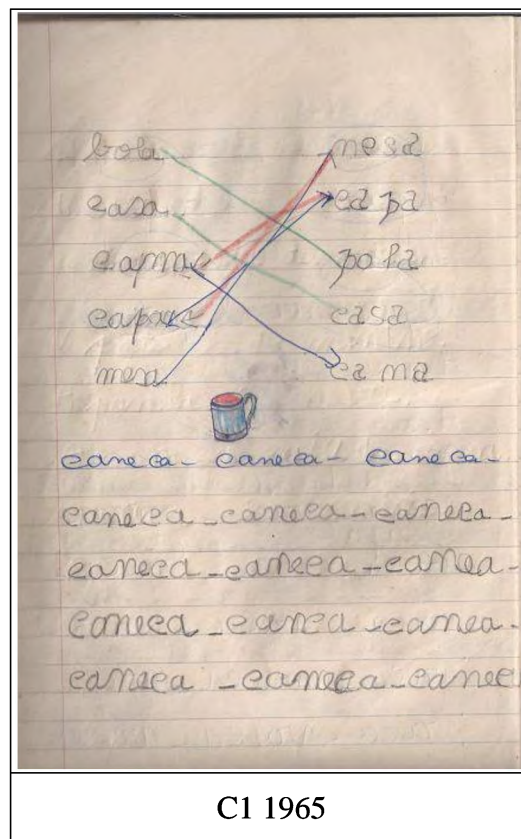 bola mesa
casa capa
cama pola
capa casa
mesa cama
caneca - caneca - caneca -
caneca - caneca - caneca -
caneca - caneca - canea -
caneca - canea - canea -
caneca - caneca - canec
C1 1965